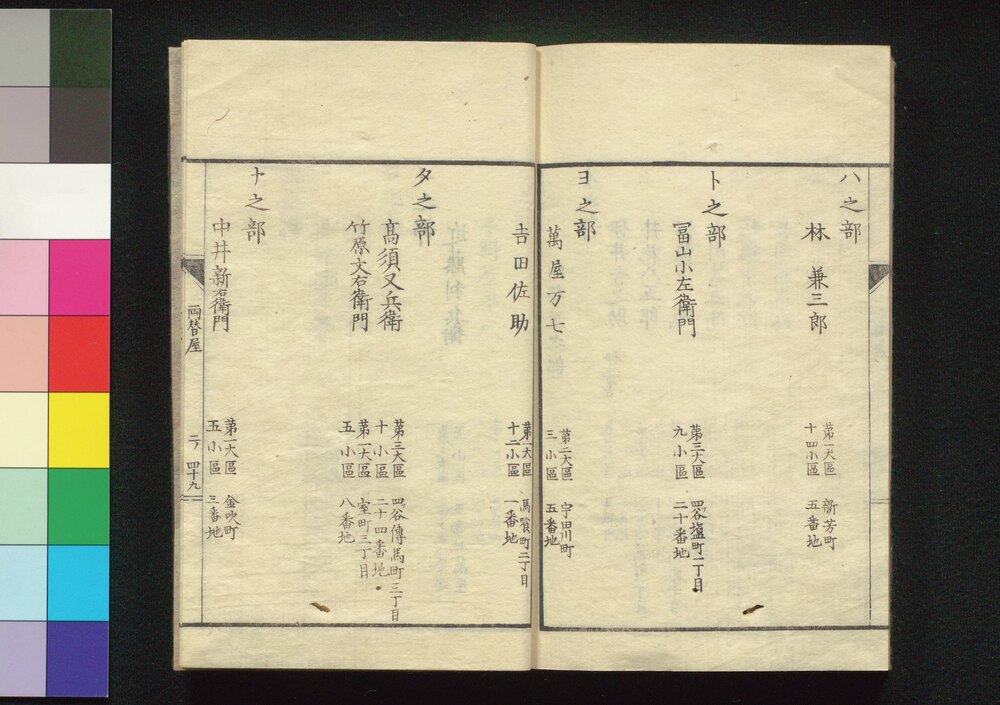 ハ之部
林 兼三郎
第一大區 新芳町
十四小區 五番地
ト之部
冨山小左衛門
第三大區 四谷塩町一丁目
九小區 二十番地
ヨ之部
萬屋万七
第二大區 宇田川町
三小區 五番地
吉田佐助
第一大區 馬喰町二丁目
十二小區 一番地
タ之部
髙須又兵衛
第三大區 四谷傳馬町三丁目
十小區 二十四番地
竹原文右衛門
第一大區 室町三丁目
五小區 八番地
ナ之部
中井新右衛門
第一大區 金吹町
五小區 三番地
両替屋
二ノ四十九